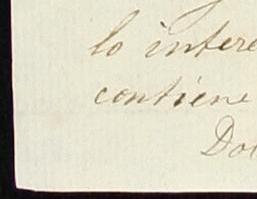 lo intere
contiene
Do